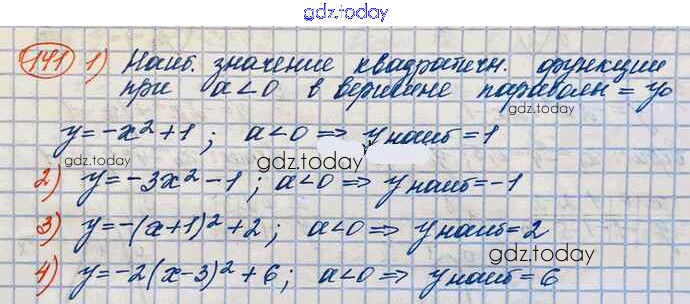 gdz.today
141 1) Наиб. значение квадратичн. функции
при a<0 в вершине параболы = y₀
gdz.today
y=-x²+1; a<0 ⇒ yнаиб=1
gdz.today gdz.today
2) y=-3x²-1; a<0 ⇒ yнаиб=-1
3) y=-(x+1)²+2; a<0 ⇒ yнаиб=2
gdz.today
4) y=-2(x-3)²+6; a<0 ⇒ yнаиб=6